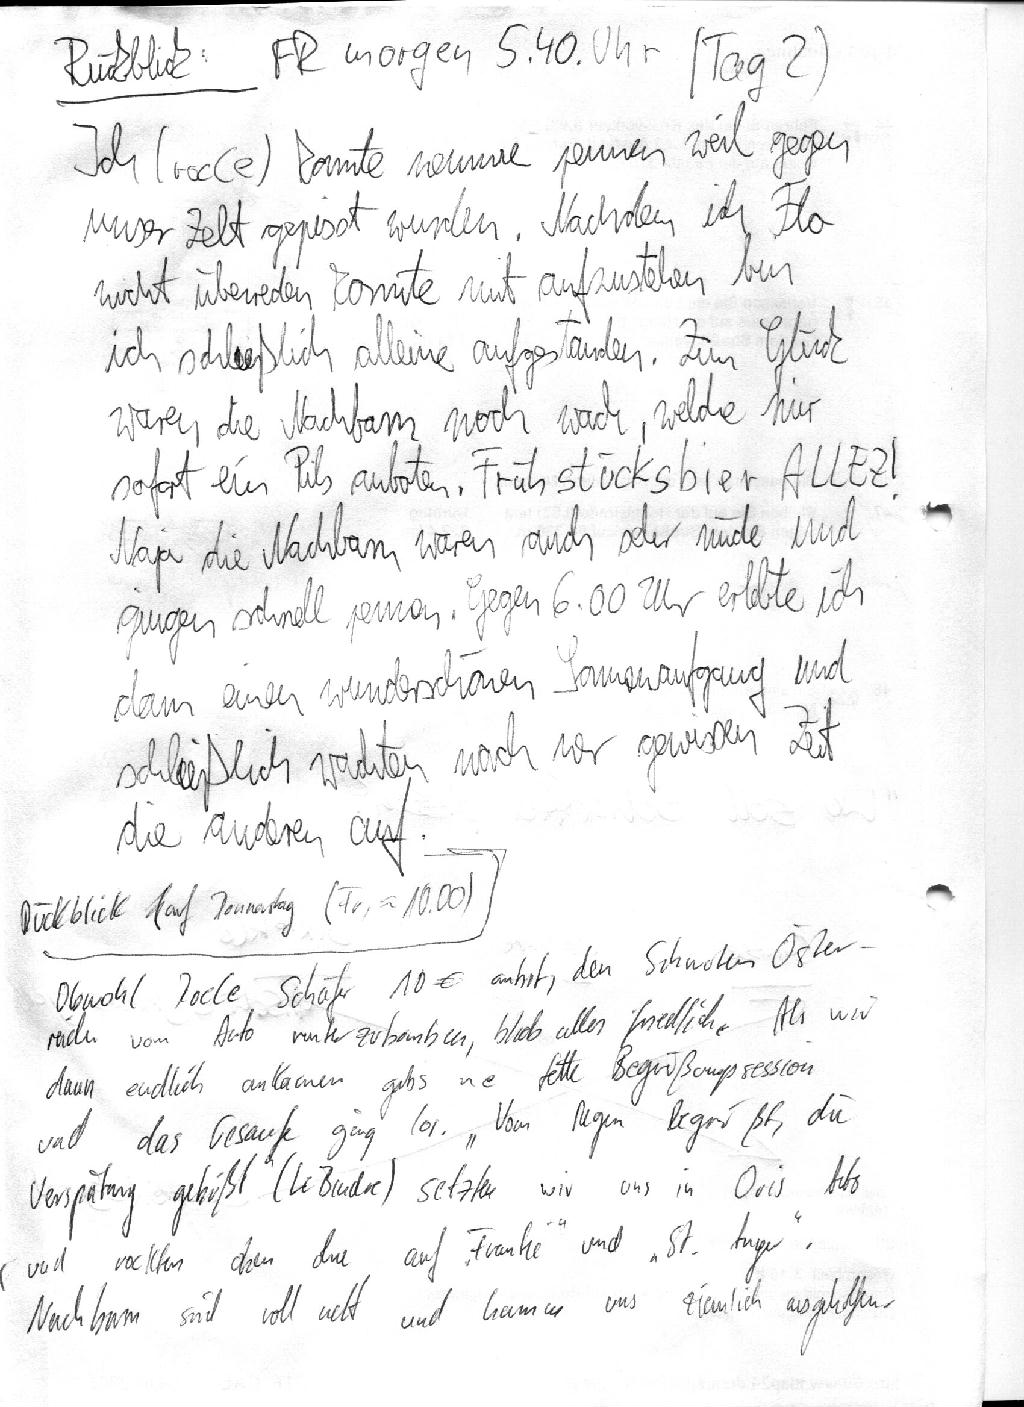 Rückblick: FR morgen 5.40. Uhr (Tag 2)
Ich (rocce) konnte nemme pennen weil gegen
unser Zelt gepisst wurden. Nachdem ich Flo
nicht überreden konnte mit aufzustehen bin
ich schließlich alleine aufgestanden. Zum Glück
waren die Nachbarn noch wach, welche mir
sofort ein Pils anboten. Frühstücksbier ALLEZ!
Naja die Nachbarn waren auch sehr müde und
gingen schnell pennen. Gegen 6.00 Uhr erlebte ich
dann einen wunderschönen Sonnenaufgang und
schließlich wachten nach ner gewissen Zeit
die anderen auf.
Rückblick auf Donnerstag (Fr, ≈ 10.00)
Obwohl Rocce Schäfer 10 € anbot, den Schwulen Öster-
reicher vom Auto runterzubomben, blieb alles friedlich. Als wir
dann endlich ankamen gabs ne fette Begrüßungssession
und das Gesaufe ging los. „Vom Regen begrüßt, die
Verspätung gebüßt" (LeBinder) setzten wir uns in Ovis Auto
und rockten eben dne auf „Frankie" und „St. Anger".
Nachbarn sind voll nett und haben uns ziemlich ausgeholfen.